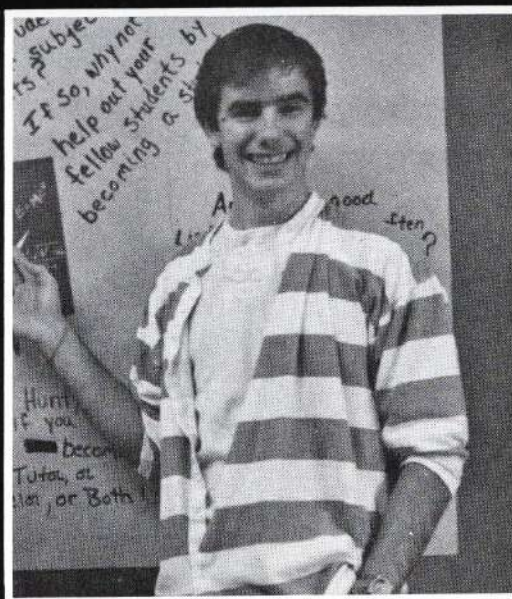 subjec
rs?
If so, why not
help out your
fellow students by
becoming a
good
sten?
Hunt
if you
becom
Tutor, or
or Both!